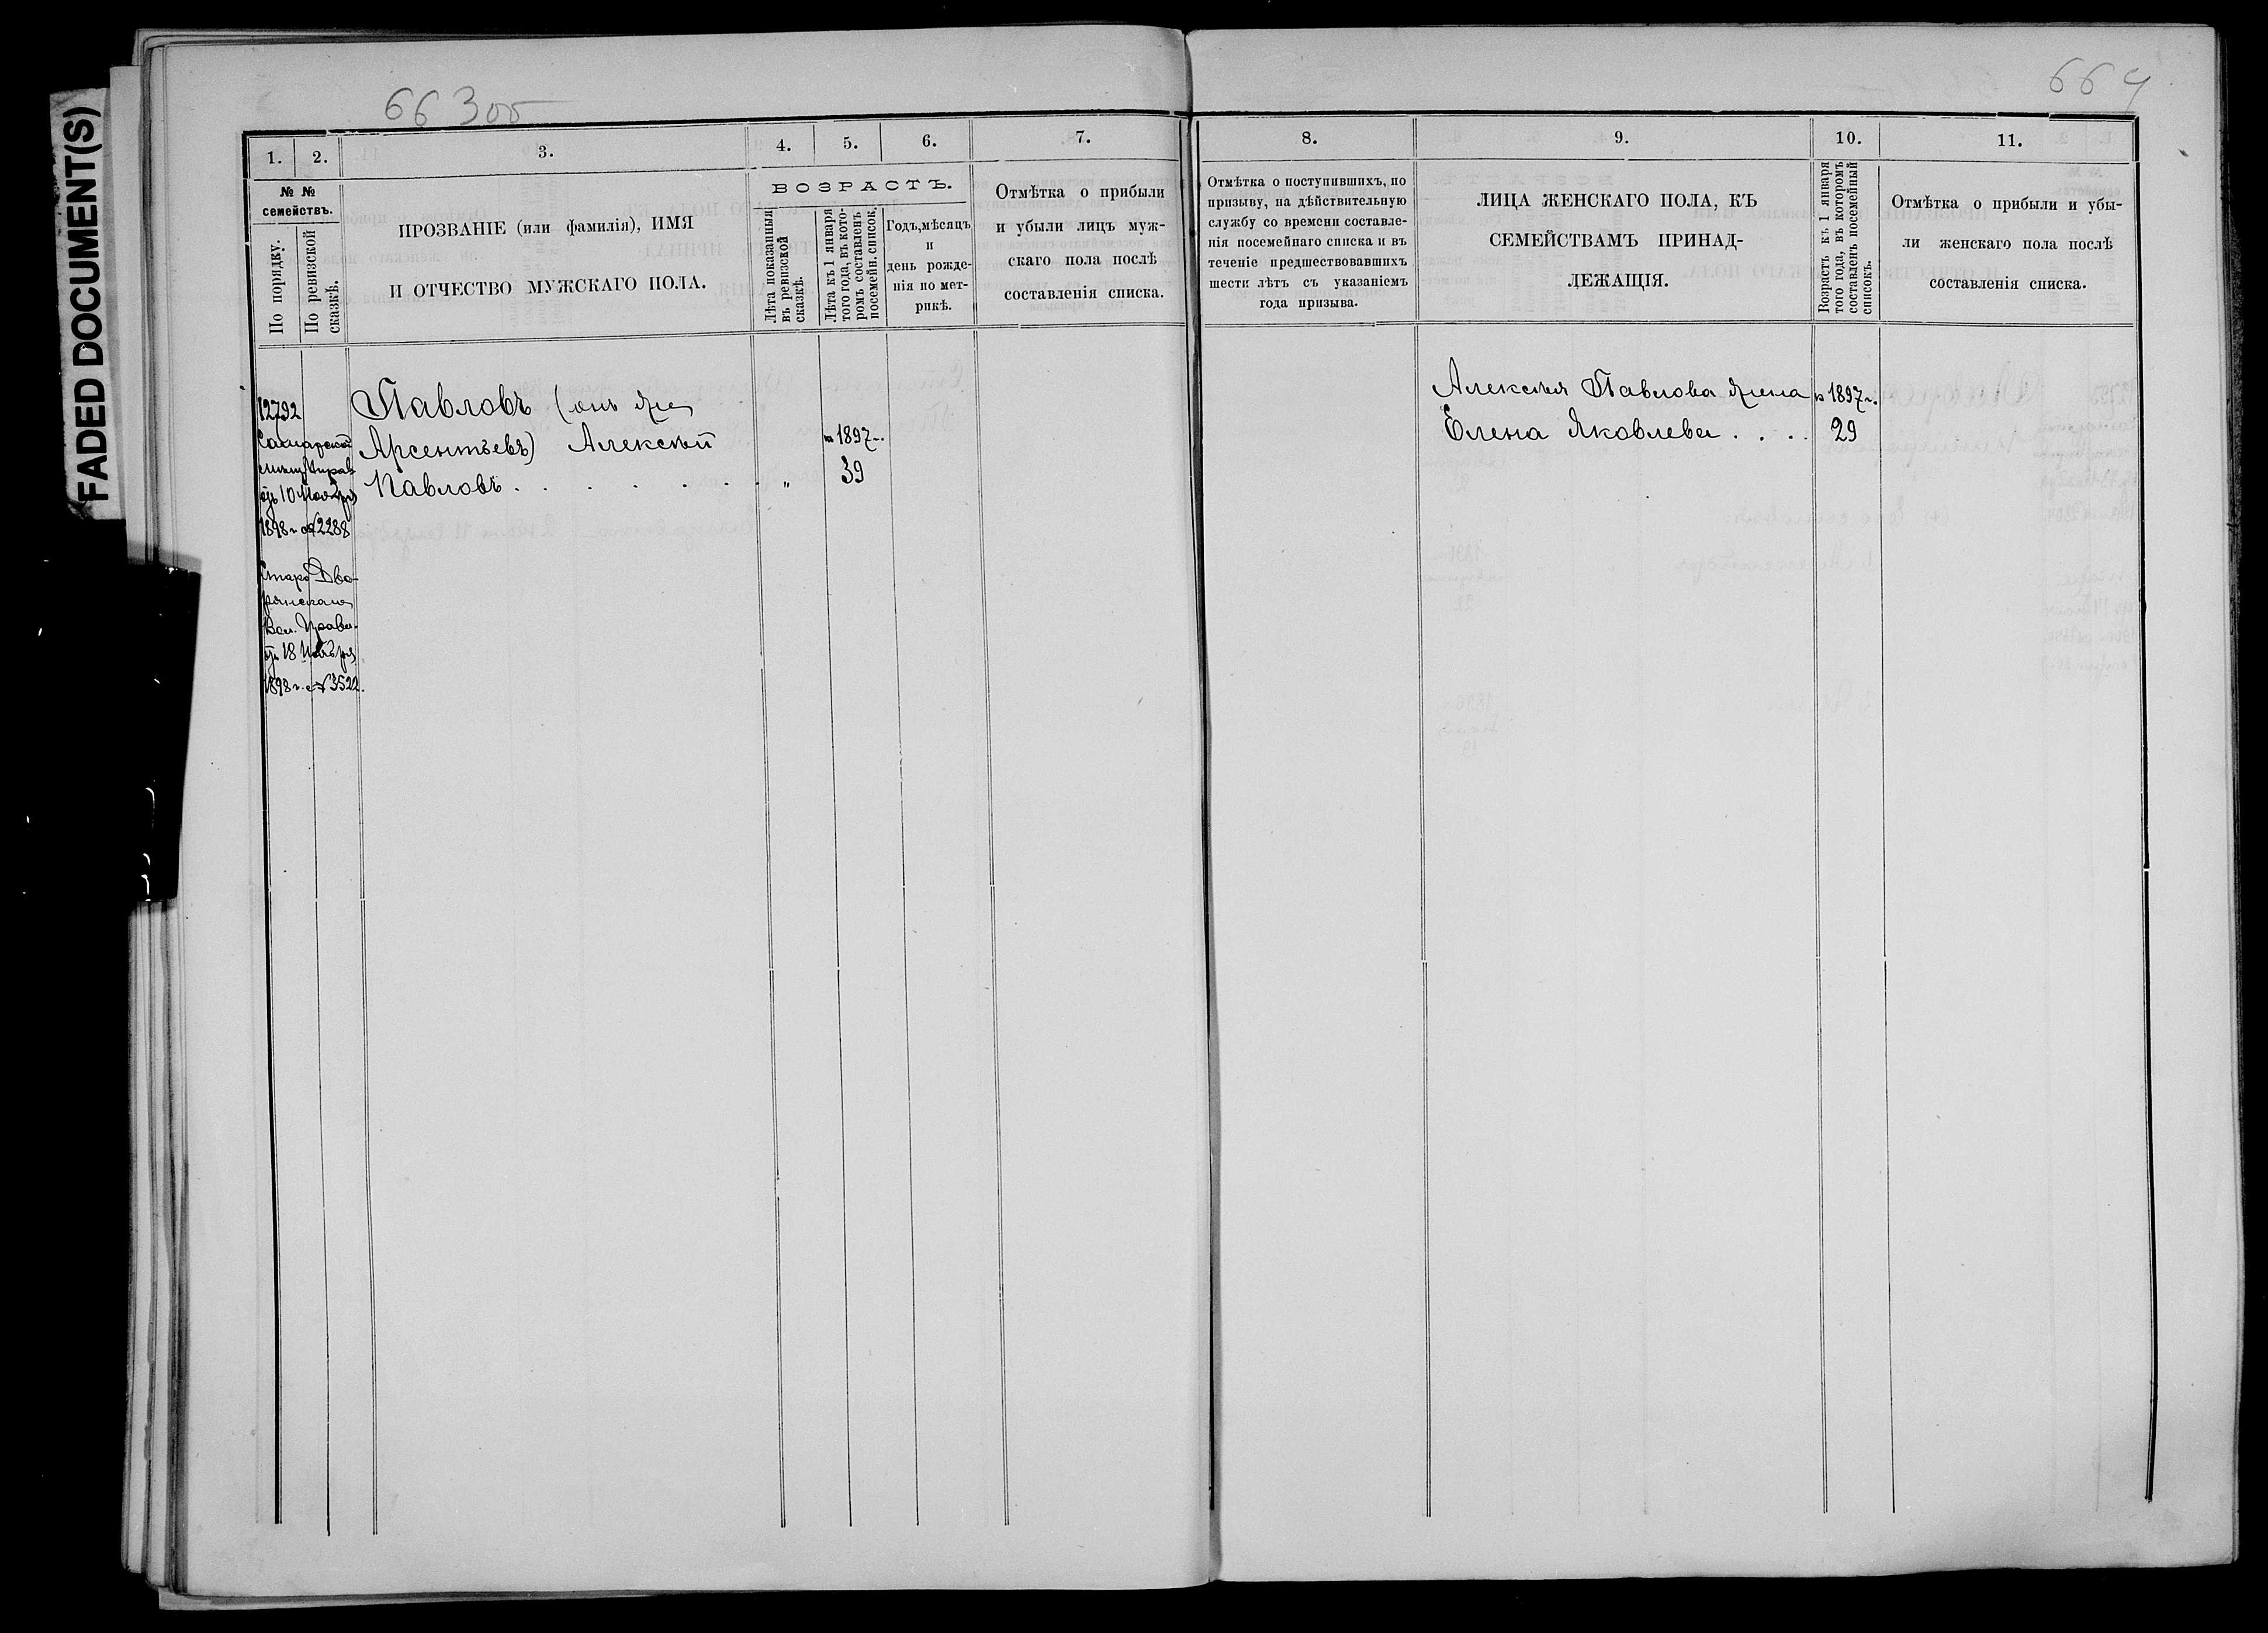 FADED DOCUMENT(S)
66 3об
664
1.
2.
3.
4.
5.
6.
7.
8.
9.
10.
11.
№ №
семействъ.
По порядку.
По ревизской
сказкѣ.
ПРОЗВАНІЕ (или фамилія), ИМЯ
И ОТЧЕСТВО МУЖСКАГО ПОЛА.
ВОЗРАСТЪ.
Лѣта показанныя
въ ревизской
сказкѣ.
Лѣта къ 1 января
того года, въ кото-
ромъ составленъ
посемейн. список.
Годъ, мѣсяцъ
и
день рожде-
нія по мет-
рикѣ.
Отмѣтка о прибыли
и убыли лицъ муж-
скаго пола послѣ
составленія списка.
Отмѣтка о поступившихъ, по
призыву, на дѣйствительную
службу со времени составле-
нія посемейнаго списка и въ
теченіе предшествовавшихъ
шести лѣтъ съ указаніемъ
года призыва.
ЛИЦА ЖЕНСКАГО ПОЛА, КЪ
СЕМЕЙСТВАМЪ ПРИНАД-
ЛЕЖАЩІЯ.
Возрастъ къ 1 января
того года, въ которомъ
составленъ посемейный
списокъ.
Отмѣтка о прибыли и убы-
ли женскаго пола послѣ
составленія списка.
12792
отъ 10 Ноября
1898 г. № 2288
Старо Дво-
рянскаго
Вол. Правл.
отъ 18 Ноября
1898 г. № 3522.
Павловъ (онъ же
Арсентьевъ) Алексѣй
Павловъ . . . . . .
"
въ 1897 г.
39
Алексѣя Павлова жена
Елена Яковлева . . . .
въ 1897 г.
29